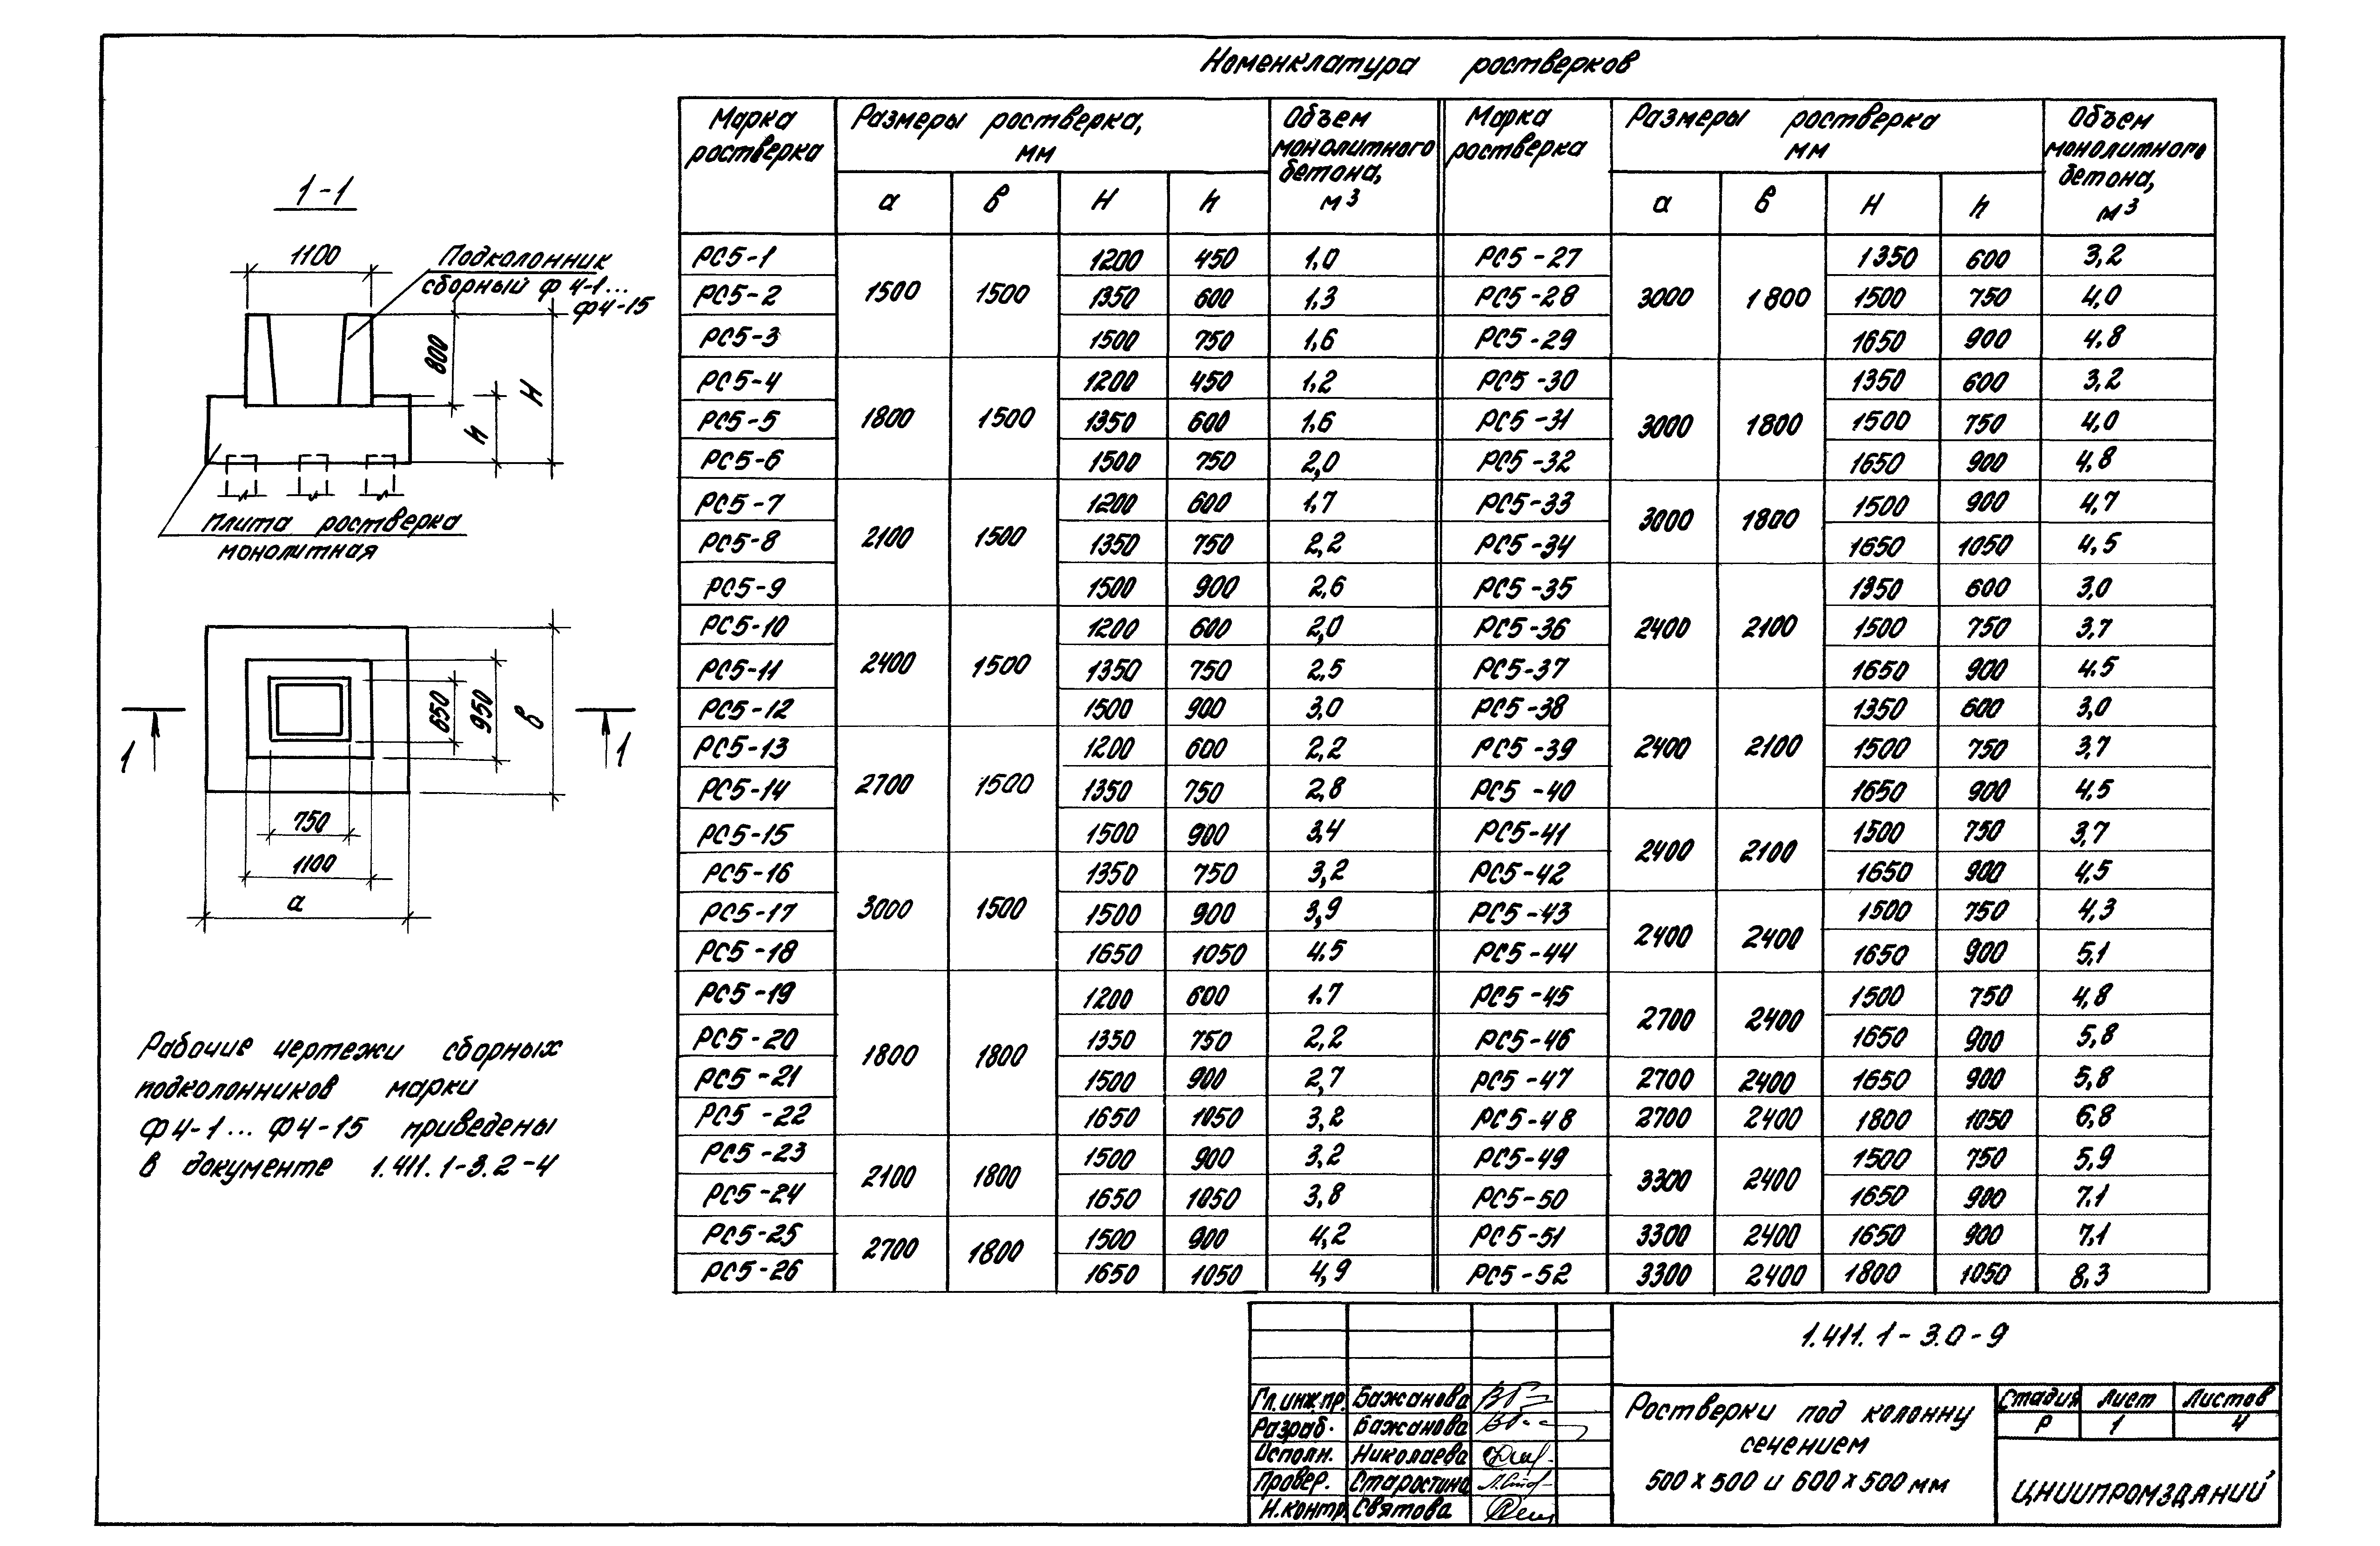 Номенклатура ростверков
1-1
1100
Подколонник
сборный Ф 4-1...
Ф4-15
800
H
h
Плита ростверка
монолитная
650
950
в
1 1
750
1100
а
Рабочие чертежи сборных
подколонников марки
Ф4-1... Ф4-15 приведены
в документе 1.411.1-3.2-4
Марка ростверка Размеры ростверка, мм Объем монолитного бетона, м³ Марка ростверка Размеры ростверка мм Объем монолитного бетона, м³
а в H h а в H h
РС5-1 1500 1500 1200 450 1,0 РС5-27 3000 1800 1350 600 3,2
РС5-2 1350 600 1,3 РС5-28 1500 750 4,0
РС5-3 1500 750 1,6 РС5-29 1650 900 4,8
РС5-4 1800 1500 1200 450 1,2 РС5-30 3000 1800 1350 600 3,2
РС5-5 1350 600 1,6 РС5-31 1500 750 4,0
РС5-6 1500 750 2,0 РС5-32 1650 900 4,8
РС5-7 2100 1500 1200 600 1,7 РС5-33 3000 1800 1500 900 4,7
РС5-8 1350 750 2,2 РС5-34 1650 1050 4,5
РС5-9 1500 900 2,6 РС5-35 2400 2100 1350 600 3,0
РС5-10 2400 1500 1200 600 2,0 РС5-36 1500 750 3,7
РС5-11 1350 750 2,5 РС5-37 1650 900 4.5
РС5-12 1500 900 3,0 РС5-38 2400 2100 1350 600 3,0
РС5-13 2700 1500 1200 600 2,2 РС5-39 1500 750 3,7
РС5-14 1350 750 2,8 РС5-40 1650 900 4,5
РС5-15 1500 900 3,4 РС5-41 2400 2100 1500 750 3,7
РС5-16 3000 1500 1350 750 3,2 РС5-42 1650 900 4,5
РС5-17 1500 900 3,9 РС5-43 2400 2400 1500 750 4,3
РС5-18 1650 1050 4.5 РС5-44 1650 900 5,1
РС5-19 1800 1800 1200 600 1.7 РС5-45 2700 2400 1500 750 4,8
РС5-20 1350 750 2,2 РС5-46 1650 900 5,8
РС5-21 1500 900 2,7 РС5-47 2700 2400 1650 900 5,8
РС5-22 1650 1050 3,2 РС5-48 2700 2400 1800 1050 6,8
РС5-23 2100 1800 1500 900 3,2 РС5-49 3300 2400 1500 750 5,9
РС5-24 1650 1050 3,8 РС5-50 1650 900 7.1
РС5-25 2700 1800 1500 900 4,2 РС5-51 3300 2400 1650 900 7,1
РС5-26 1650 1050 4,9 РС5-52 3300 2400 1800 1050 8,3
1.411.1-3.0-9
Гл.инж.пр. Бажанова
Разраб. Бажанова
Исполн. Николаева
Провер. Старостина
Н.контр. Святова
Ростверки под колонну
сечением
500х500 и 600х500 мм
Стадия Лист Листов
Р 1 4
ЦНИИПРОМЗДАНИЙ